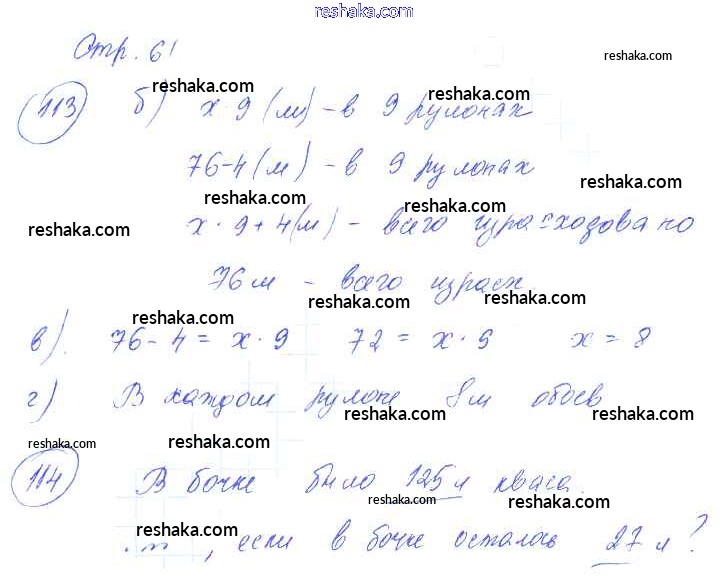 reshaka.com
Стр. 61
reshaka.com
reshaka.com
reshaka.com
113 б) x · 9 (м) - в 9 рулонах
76-4 (м) - в 9 рулонах
reshaka.com
reshaka.com
reshaka.com
reshaka.com
x · 9 + 4 (м) - всего израсходовано
reshaka.com
76 м - всего израсх.
reshaka.com
reshaka.com
reshaka.com
в). 76 - 4 = x · 9 72 = x · 9 x = 8
reshaka.com
г) В каждом рулоне 8 м обоев
reshaka.com
reshaka.com
reshaka.com
reshaka.com
114 В бочке было 125 л кваса.
reshaka.com
reshaka.com
reshaka.com
, если в бочке осталось 27 л?
reshaka.com